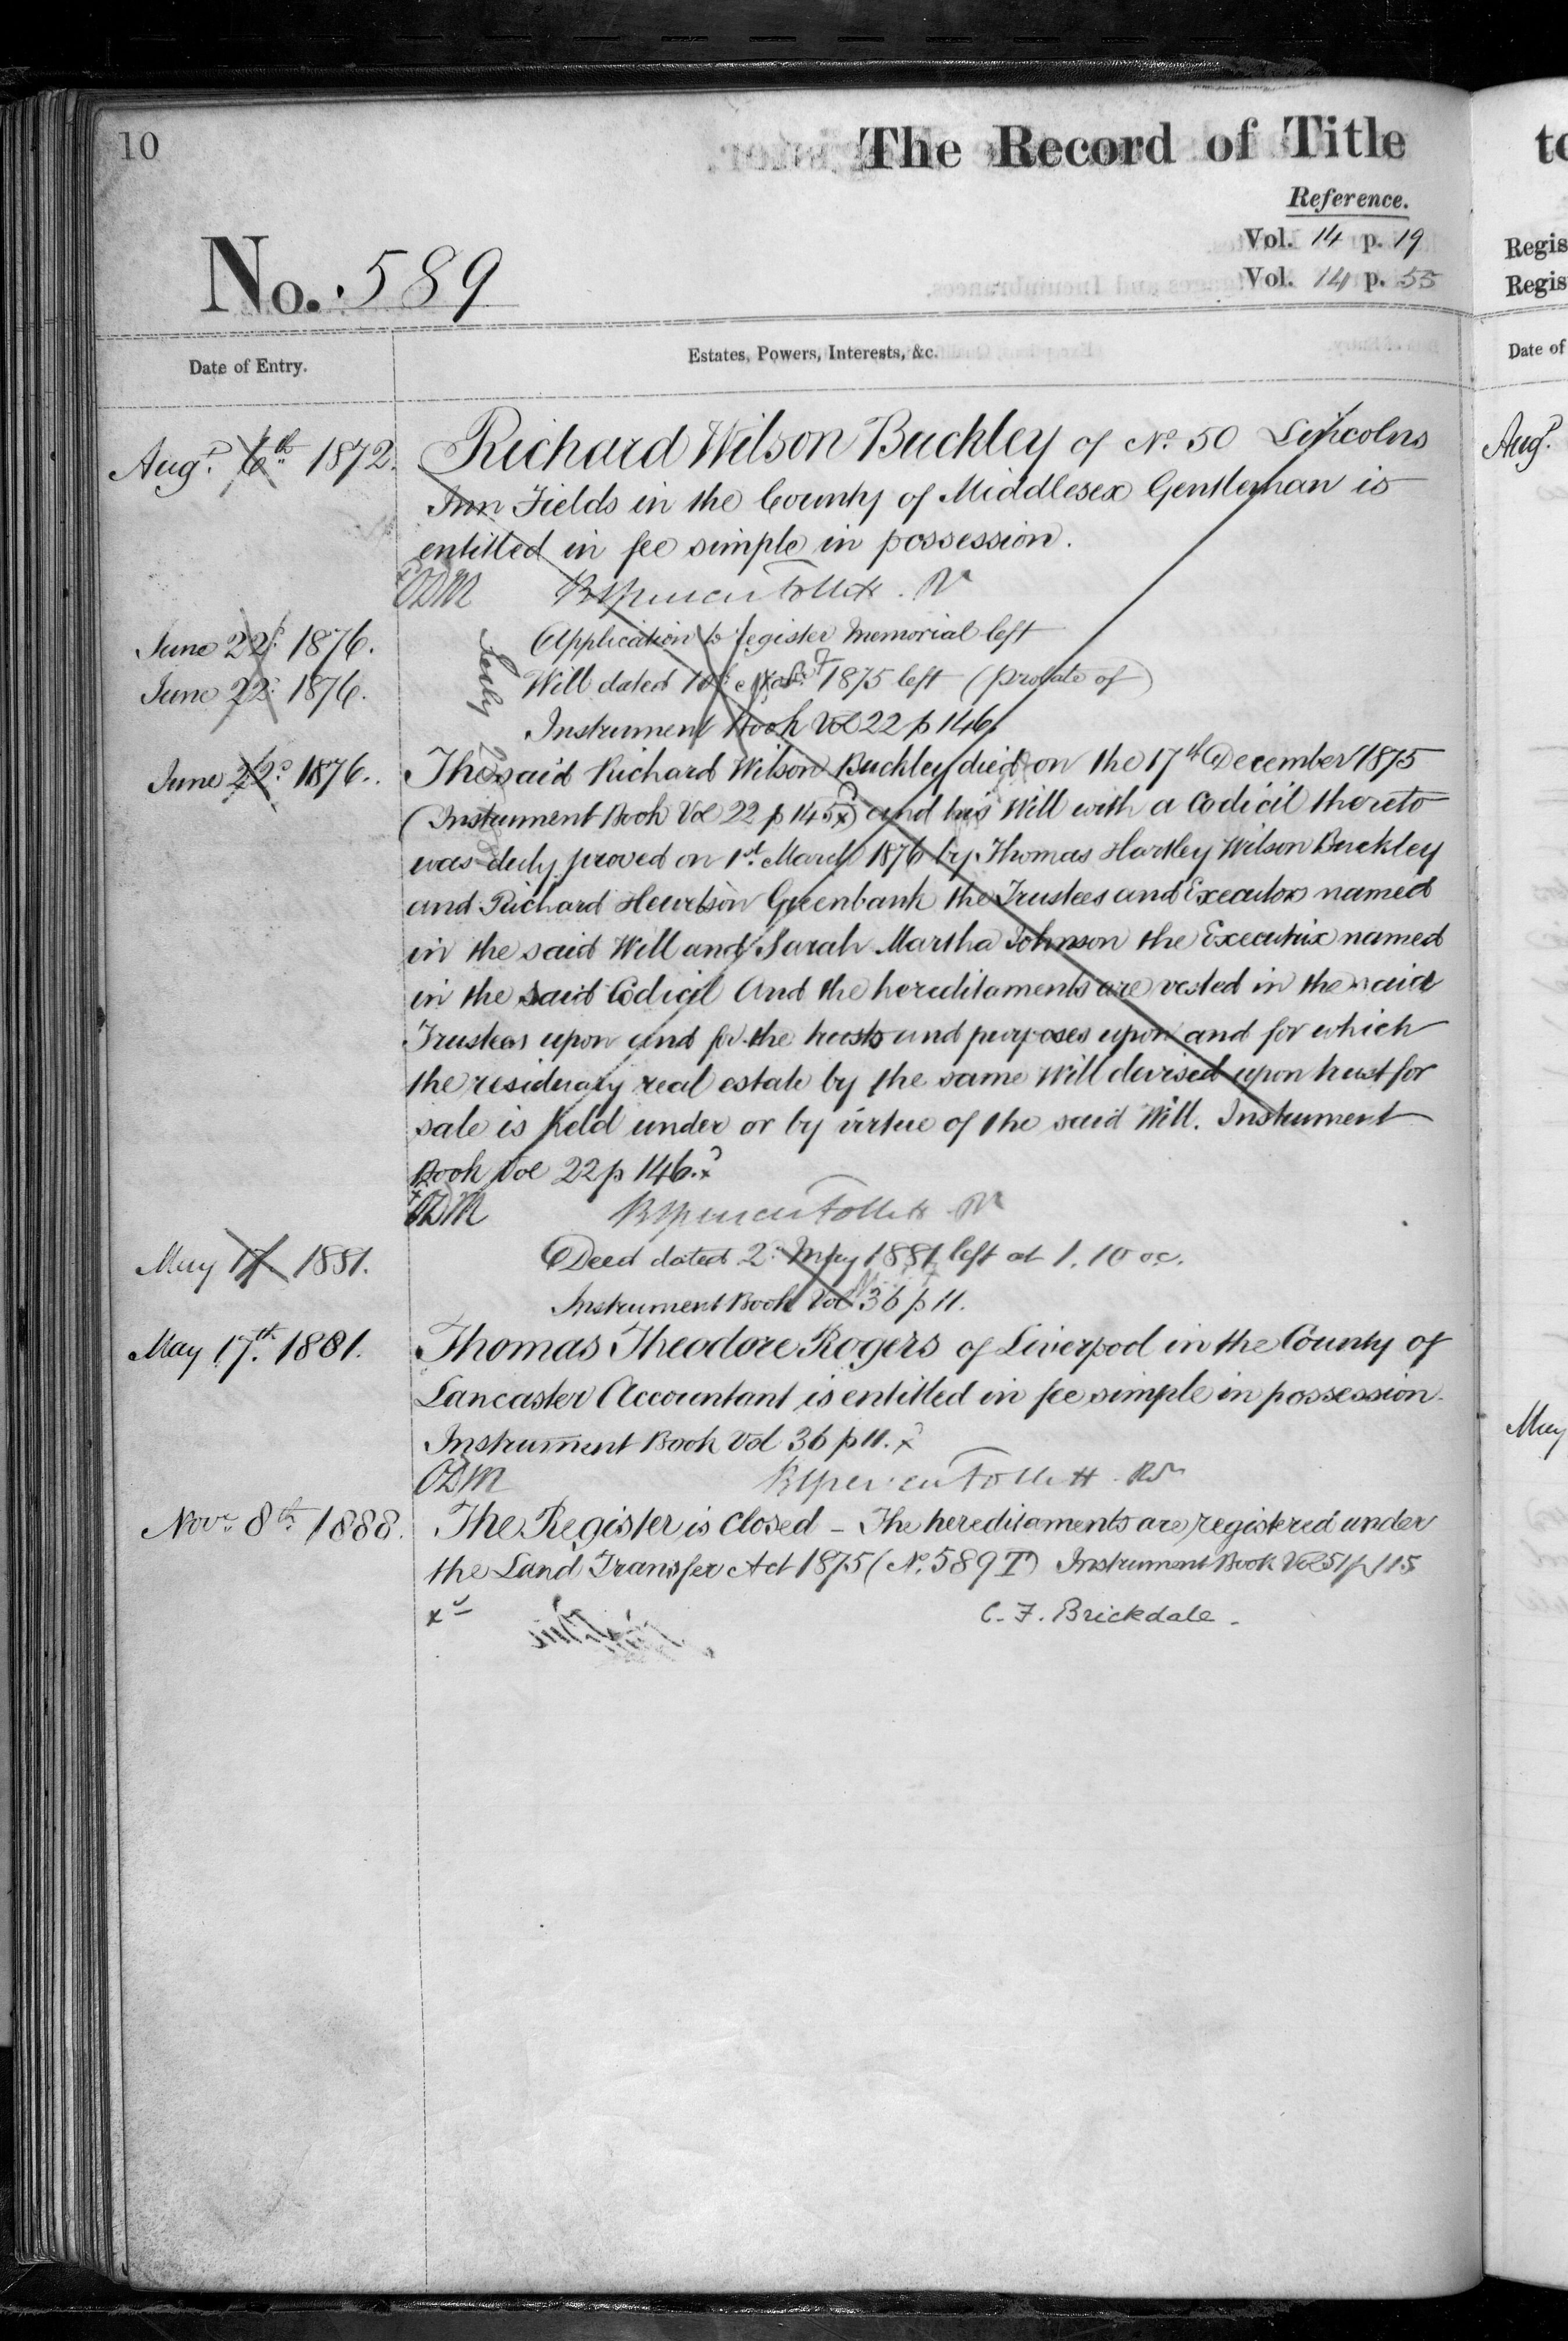 10
The Record of Title
Reference.
Vol. 14 p. 19
Vol. 14 p. 55
No. 589
Date of Entry.
Estates, Powers, Interests, &c.
Augt. 6th 1872. Richard Wilson Buckley of No. 50 Lincolns
Inn Fields in the County of Middlesex Gentleman is
entitled in fee simple in possession.
ODM BSpencer Follett. R
June 22d. 1876. Application to register Memorial left
June 22d. 1876. Will dated 1875 left (probate of)
Instrument Book Vol 22 p 146
July
June 22d. 1876. The said Richard Wilson Buckley died on the 17th December 1875
(Instrument Book Vol 22 p 145) and his Will with a Codicil thereto
was duly proved on 1st March 1876 by Thomas Hartley Wilson Buckley
and Richard Hewetson Greenbank the Trustees and Executors named
in the said Will and Sarah Martha Johnson the Executrix named
in the said Codicil And the hereditaments are vested in the said
Trustees upon and for the trusts and purposes upon and for which
the residuary real estate by the same Will devised upon trust for
sale is held under or by virtue of the said Will. Instrument
Book Vol 22 p 146.
ODM BSpencer Follett R
May 17 1881. Deed dated 2d. May 1881 left at 1.10 oc.
Instrument Book Vol 36 p 11.
May 17th. 1881. Thomas Theodore Rogers of Liverpool in the County of
Lancaster Accountant is entitled in fee simple in possession.
Instrument Book Vol 36 p 11. x
ODM BSpencer Follett. R
Novr. 8th. 1888. The Register is closed – The hereditaments are registered under
the Land Transfer Act 1875 (No. 589 T) Instrument Book Vol 51 p 115
C. F. Brickdale.
to
Regis
Regis
Date of
Augt.
May